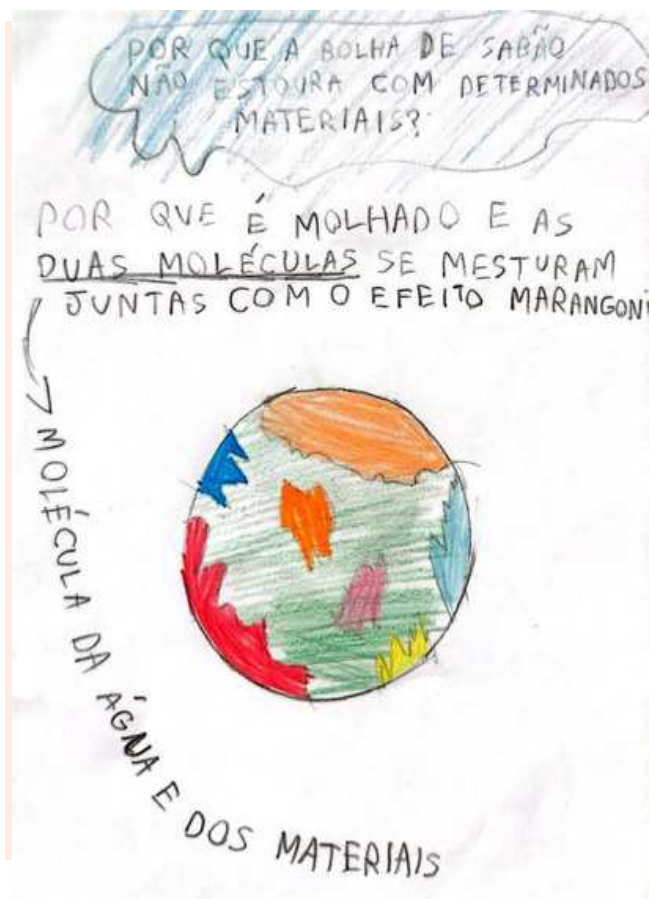 POR QUE A BOLHA DE SABÃO
NÃO ESTOURA COM DETERMINADOS
MATERIAIS?
POR QUE É MOLHADO E AS
DUAS MOLÉCULAS SE MESTURAM
JUNTAS COM O EFEITO MARANGONI
MOLÉCULA DA ÁGNA E DOS MATERIAIS